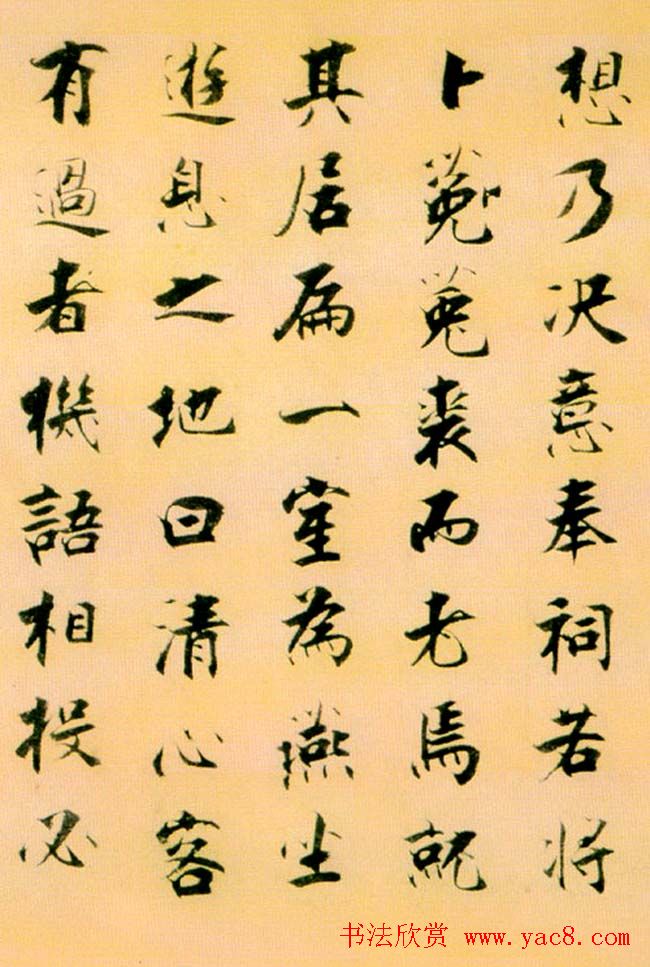 想乃决意奉祠若将
卜菟菟裘而老焉就
其居扁一室為燕坐
遊息之地曰清心客
有過者機語相投必
书法欣赏 www.yac8.com